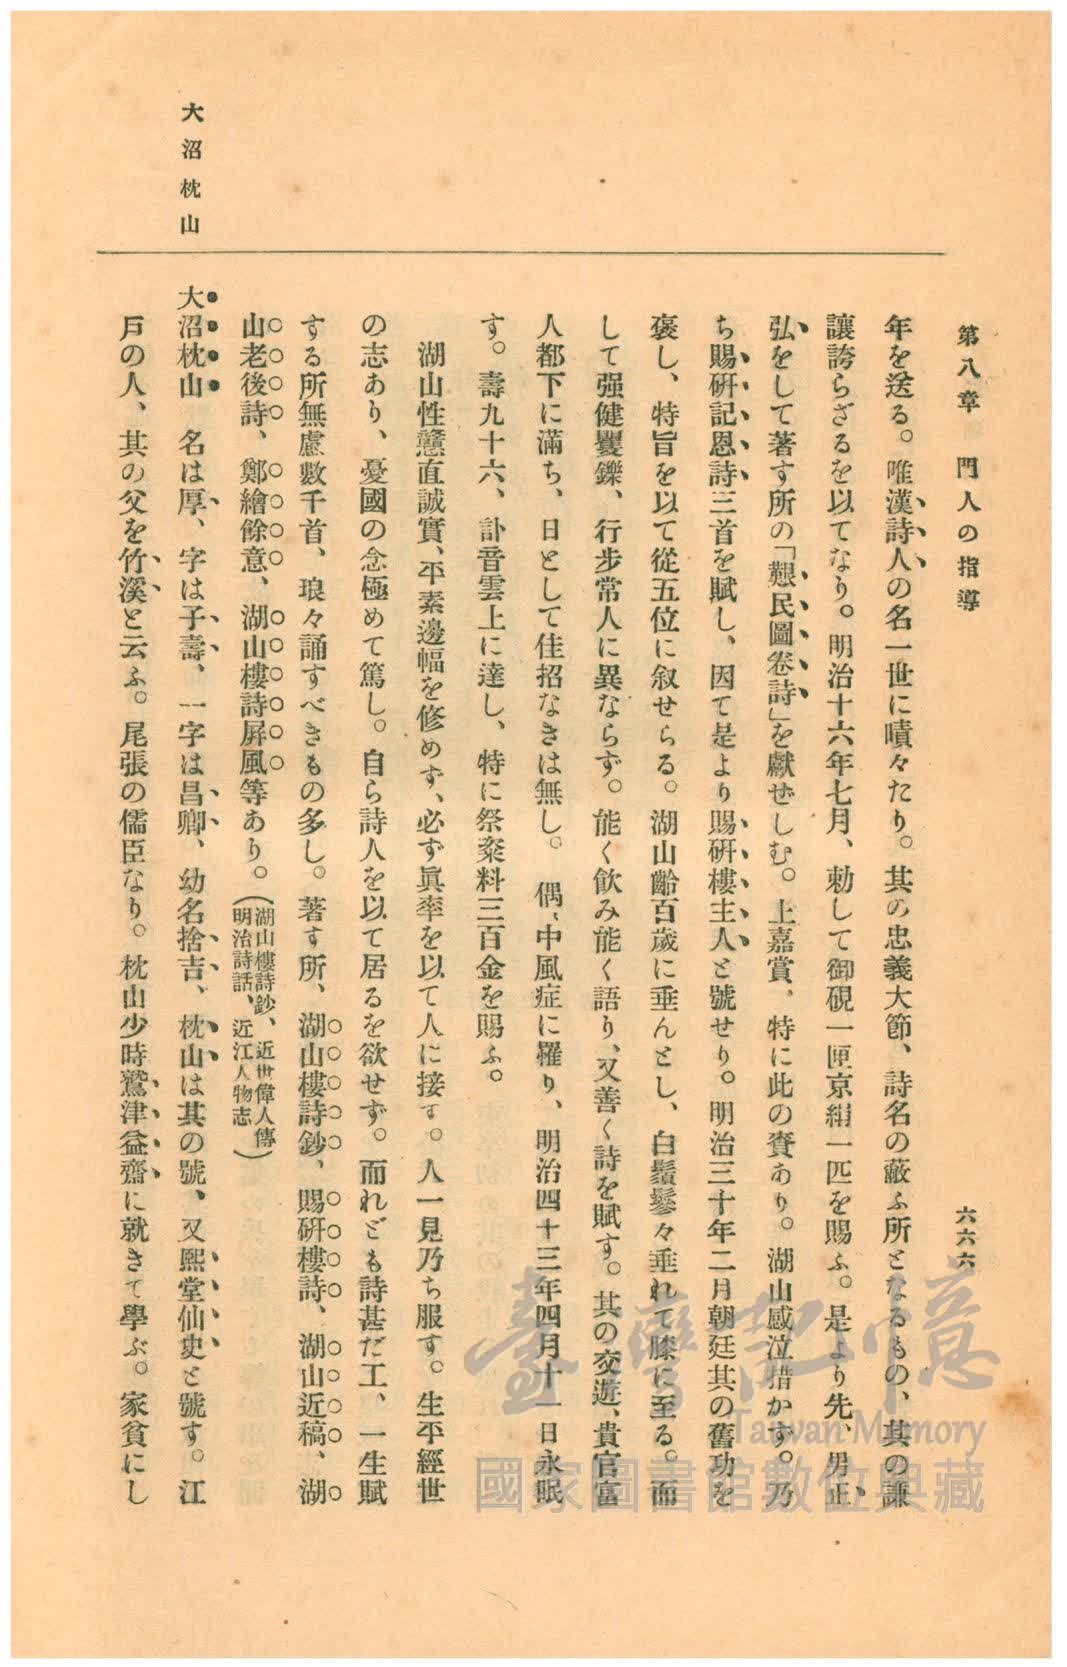 第八章　門人の指導
六六六
年を送る。唯漢詩人の名一世に嘖々たり。其の忠義大節、詩名の蔽ふ所となるもの、其の謙
讓誇らざるを以てなり。明治十六年七月、勅して御硯一匣京絹一匹を賜ふ。是より先、男正
弘をして著す所の「艱民圖卷詩」を獻ぜしむ。上嘉賞、特に此の賚あり。湖山感泣措かず。乃
ち賜硏記恩詩三首を賦し、因て是より賜硏樓主人と號せり。明治三十年二月朝廷其の舊功を
褒し、特旨を以て從五位に叙せらる。湖山齡百歲に垂んとし、白鬚鬖々垂れて膝に至る。而
して强健矍鑠、行步常人に異ならず。能く飮み能く語り、又善く詩を賦す。其の交遊、貴官富
人都下に滿ち、日として佳招なきは無し。偶〻中風症に罹り、明治四十三年四月十一日永眠
す。壽九十六、訃音雲上に達し、特に祭粢料三百金を賜ふ。
湖山性戇直誠實、平素邊幅を修めず、必ず眞率を以て人に接す。人一見乃ち服す。生平經世
の志あり、憂國の念極めて篤し。自ら詩人を以て居るを欲せず。而れども詩甚だ工、一生賦
する所無慮數千首、琅々誦すべきもの多し。著す所、湖山樓詩鈔、賜硏樓詩、湖山近稿、湖
山老後詩、鄭繪餘意、湖山樓詩屛風等あり。（湖山樓詩鈔、近世偉人傳
明治詩話、近江人物志）
大沼枕山
大沼枕山　名は厚、字は子壽、一字は昌卿、幼名捨吉、枕山は其の號、又熙堂仙史と號す。江
戶の人、其の父を竹溪と云ふ。尾張の儒臣なり。枕山少時鷲津益齋に就きて學ぶ。家貧にし
臺灣記憶
Taiwan Memory
國家圖書館數位典藏